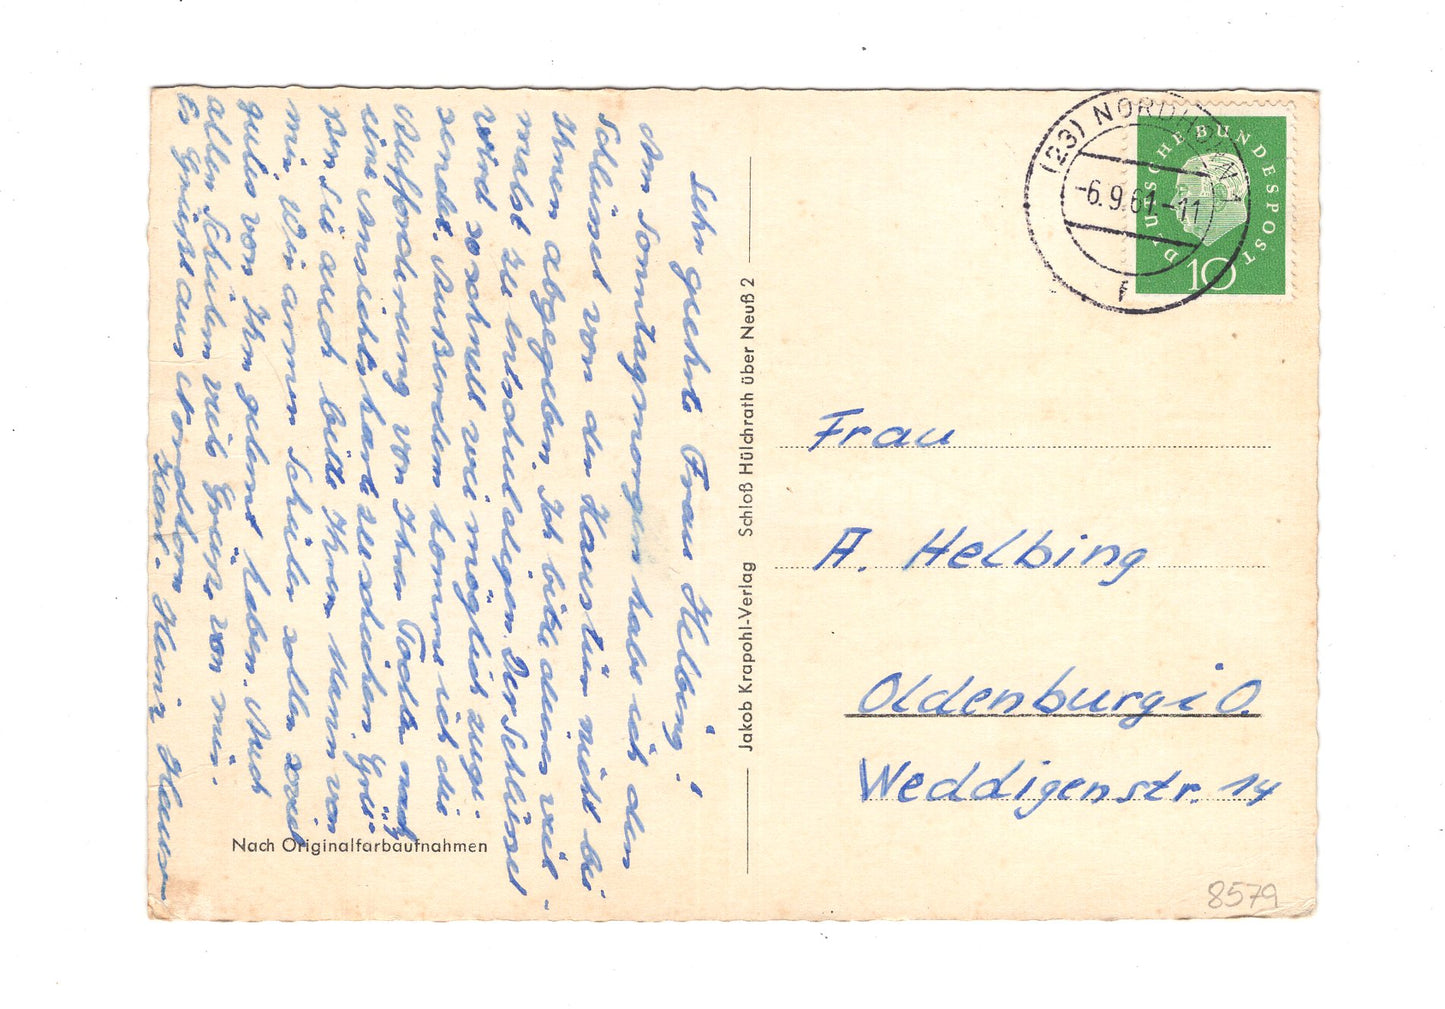 Sehr geehrte Frau Helbing!
Am Sonntagmorgen habe ich den
Schlüssel von der Haustür nicht bei
Ihnen abgegeben. Ich bitte dieses viel-
malst zu entschuldigen. Der Schlüssel
wird so schnell wie möglich zuge-
sendet. Außerdem komme ich die
Aufforderung von Ihrer Tochter nach
eine Ansichtskarte zu schicken. Grü-
ßen Sie auch bitte Ihren Mann von
mir. Wir armen Schüler sollen soviel
gutes von Ihm gelernt haben. Auch
allen Schülern viele Grüße von mir.
Es Grüßt aus Nordhorn
Karl-Heinz Klaus
Nach Originalfarbaufnahmen
Jakob Krapohl-Verlag Schloß Hülchrath über Neuß 2
(23) NORDHORN 1
-6.9.61-11
f
DEUTSCHE BUNDESPOST
10
Frau
A. Helbing
Oldenburg i O.
Weddigenstr. 14
8579